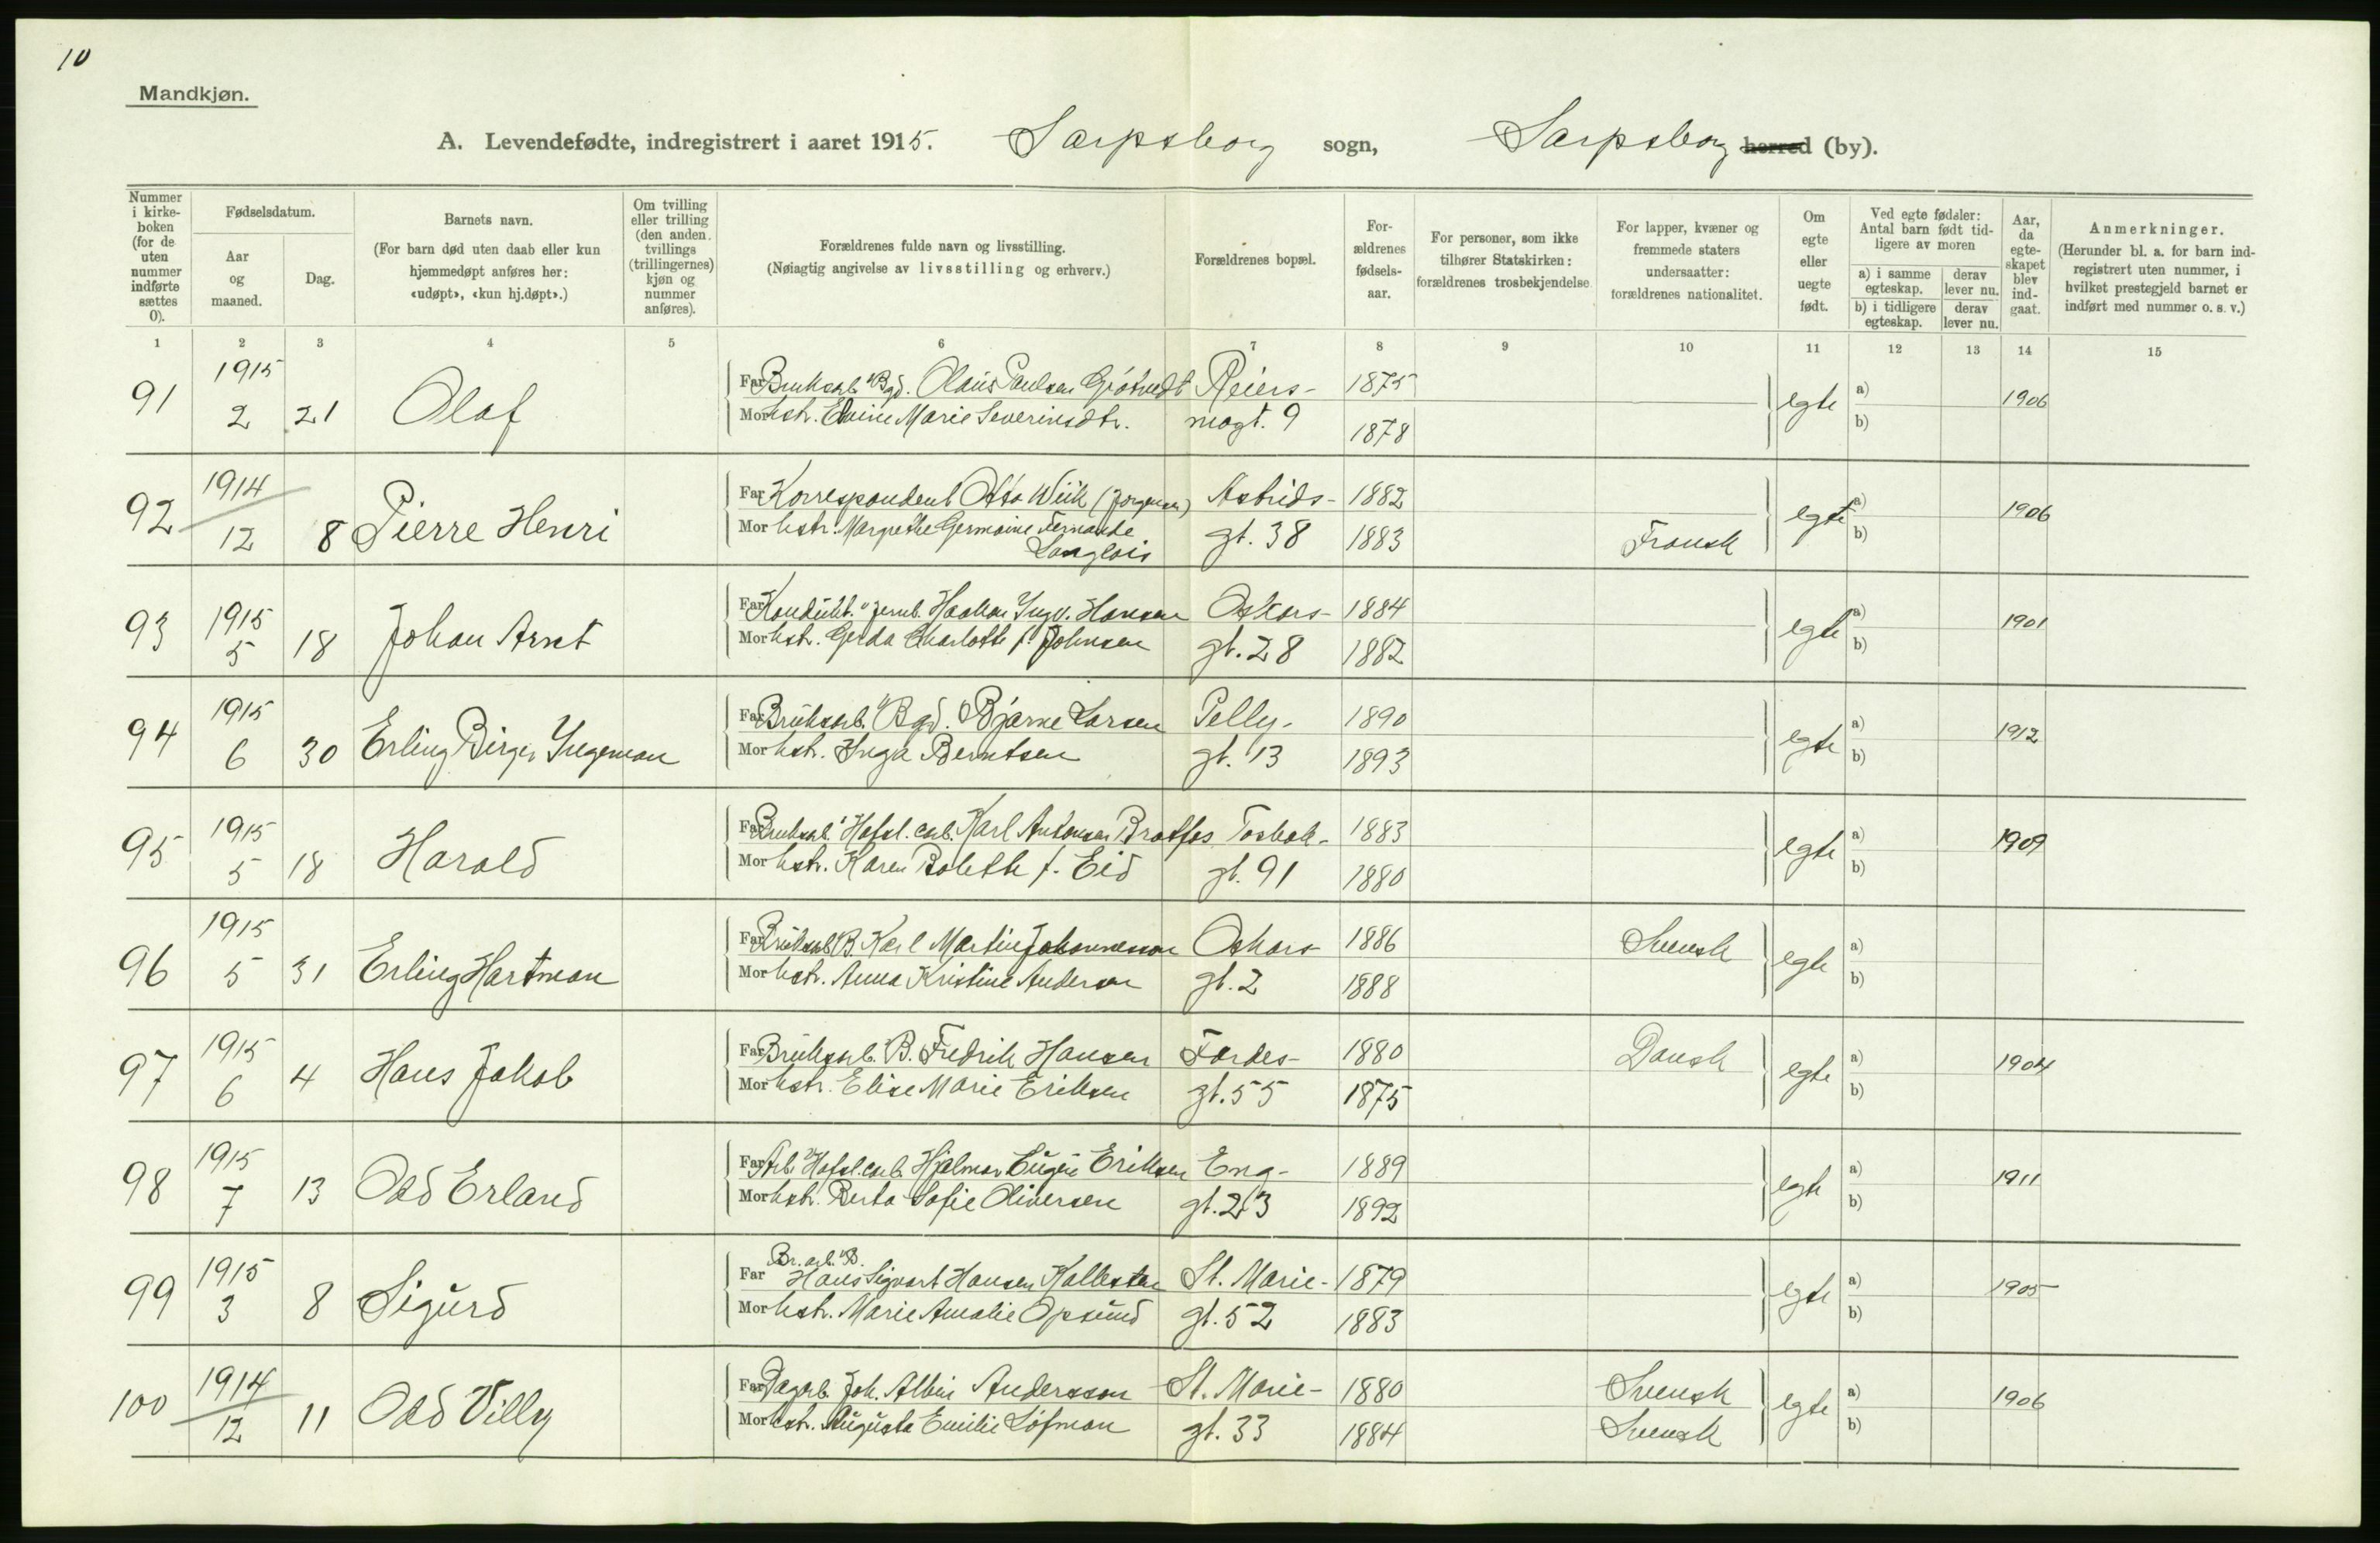 10
Mandkjøn.
A. Levendefødte, indregistrert i aaret 1915. Sarpsborg sogn, Sarpsborg herred (by).
Nummer i kirkeboken (for de uten nummer indførte sættes 0).
Fødselsdatum.
Aar og maaned.
Dag.
Barnets navn.
(For barn død uten daab eller kun hjemmedøpt anføres her: «udøpt», «kun hj.døpt».)
Om tvilling eller trilling (den anden tvillings (trillingernes) kjøn og nummer anføres).
Forældrenes fulde navn og livsstilling.
(Nøiagtig angivelse av livsstilling og erhverv.)
Forældrenes bopæl.
Forældrenes fødselsaar.
For personer, som ikke tilhører Statskirken: forældrenes trosbekjendelse
For lapper, kvæner og fremmede staters undersaatter: forældrenes nationalitet.
Om egte eller uegte født.
Ved egte fødsler: Antal barn født tidligere av moren
a) i samme egteskap.
derav lever nu.
b) i tidligere egteskap.
derav lever nu.
Aar, da egteskapet blev indgaat.
Anmerkninger.
(Herunder bl. a. for barn indregistrert uten nummer, i hvilket prestegjeld barnet er indført med nummer o. s. v.)
1 2 3 4 5 6 7 8 9 10 11 12 13 14 15
91 1915 2 21 Olaf
Far Bruksarb. Bgd. Olaus Paulsen Reiers- 1875
Mor hstr. Marie Severinsdtr. magt. 9 1878
egte a) b) 1906
92 1914 12 8 Pierre Henri
Far Korrespondent Otto Wiik (Jørgensen) Astrids- 1882
Mor hstr. Margrethe Germaine Fernande Langlois gt. 38 1883 Fransk
egte a) b) 1906
93 1915 5 18 Johan Arnt
Far Kondukt. v/ Jernb. Haakon Ingv. Hansen Oskars- 1884
Mor hstr. Gerda Charlotte f. Johnsen gt. 28 1882
egte a) b) 1901
94 1915 6 30 Erling Birger Ingeman
Far Bruksarb. v/ Bgd. Bjarne Larsen Pelly- 1890
Mor hstr. Inga Berntsen gt. 13 1893
egte a) b) 1912
95 1915 5 18 Harald
Far Bruksarb. v/ Hafsl. carb. Karl Antonsen Bratfos Torsbak- 1883
Mor hstr. Karen Bolette f. Eid gt. 91 1880
egte a) b) 1909
96 1915 5 31 Erling Hartman
Far Bruksarb. B. Karl Martin Johannesson Oskars- 1886 Svensk
Mor hstr. Anna Kristine Andersen gt. 2 1888
egte a) b)
97 1915 6 4 Hans Jakob
Far Bruksarb. B. Fredrik Hansen Fordes- 1880 Dansk
Mor hstr. Elise Marie Eriksen gt. 55 1875
egte a) b) 1904
98 1915 7 13 Odd Erland
Far Arb. v/ Hafsl. carb. Hjalmar Eugen Eriksen Eng- 1889
Mor hstr. Berta Sofie Oliversen gt. 23 1892
egte a) b) 1911
99 1915 3 8 Sigurd
Br. arb. v/ B.
Far Hans Sigvart Hansen Kallesten St. Marie- 1879
Mor hstr. Marie Amalie Opsund gt. 52 1883
egte a) b) 1905
100 1914 12 11 Odd Villy
Far Dagarb. Joh. Albin Andersson St. Marie- 1880 Svensk
Mor hstr. Augusta Emilie Löfman gt. 33 1884 Svensk
egte a) b) 1906